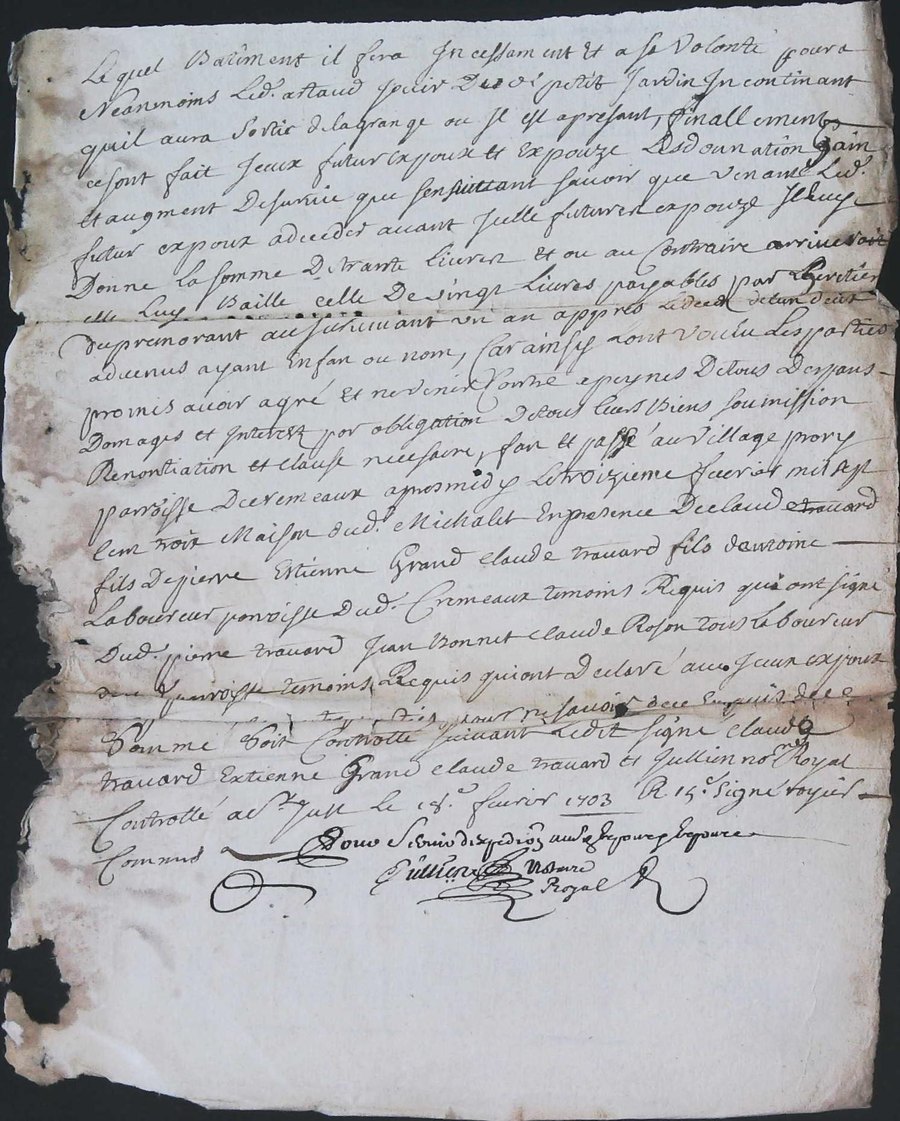 Lequel Batiment il fera Incessament Et a sa Volonté poura
Neanmoins Led. artaud jouir Dud. petit Jardin Incontinant
quil aura sortir delagrange ou Il est apresant, finallement
ce sont fait Jeux futur expoux et expouze Les donnation Gain
et augment Desurvie que sensuittant savoir que Venant Led.
futur expoux adceder avant Julle future expouze Il luy
Donne la somme De trante livres Et ou au Contraire arriveroit
elle Luy Baille celle De vingt Livres payables par Lheretier
du premorant au survivant un an appres Ledeces delun deux
advenus ayant Enfan ou nom, Car ainsy Lont voulu Les parties
promis avoir agré Et ne venir Contre a peynes De tous Despans
Domages et Interetz par obligation De tous leurs Biens soumission
Renontiation et clause necesaire, fait et passé au village
parroisse Decremeaux apresmidy Le troizieme fevrier mil sept
cent trois Maison dud. Michalet En presence De Claude travard
fils De pierre Estienne Grand Claude travard fils dantoine
Laboureur parroisse Dud. Cremeaux temoins Requis qui ont signé
Dud. pierre travard Jean Bonnet Claude Roson tous laboureur
parroisse temoins Requis qui ont Declaré avec Jeux expoux
pour ne savoir dece Enquis
Somme Soit Controllé suivant Ledit signé Claude
travard Extienne Grand Claude travard et Jullien nore Royal
Controllé a St Just Le 18e fevrier 1703 R. 15s Signé
Commis
Pour Seconde expedion aud. Expoux Expouze
Jullien Notaire
Royal